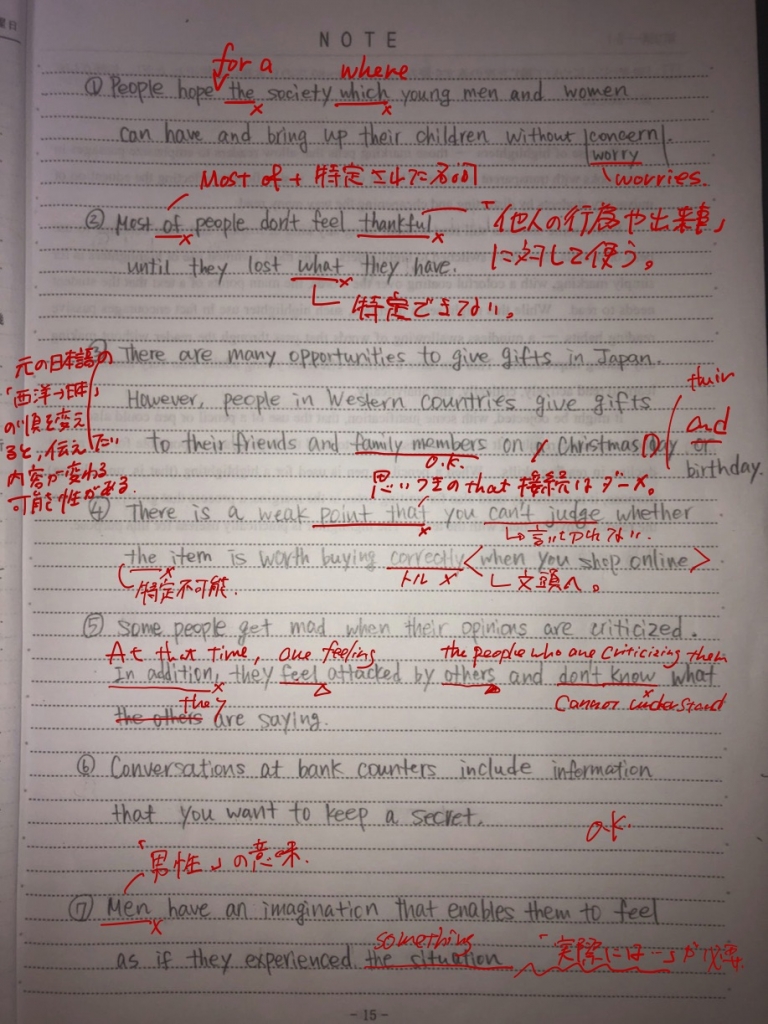 NOTE
for a where
① People hope the society which young men and women
can have and bring up their children without concern
worry
worries.
Most of + 特定
② Most of people don't feel thankful
「他人の行為や出来事」
に対して使う。
until they lost what they have.
特定できてない。
③ There are many opportunities to give gifts in Japan.
元の日本語の
「西洋→日本」
の順を変え
ると、伝えたい
内容が変わる
可能性がある.
However, people in Western countries give gifts
their
and
to their friends and family members on Christmas Day or
birthday.
O.K.
思いつきのthat接続はダーメ。
④ There is a weak point that you can't judge whether
the item is worth buying correctly when you shop online
特定不可能.
トル
文頭へ。
⑤ Some people get mad when their opinions are criticized.
At that time, are feeling the people who are criticizing them
In addition, they feel attacked by others and don't know what
they
cannot understand
the others are saying.
⑥ Conversations at bank counters include information
that you want to keep a secret.
O.K.
「男性」の意味.
⑦ Men have an imagination that enables them to feel
something
as if they experienced the situation
「実際には…」が必要
- 15 -